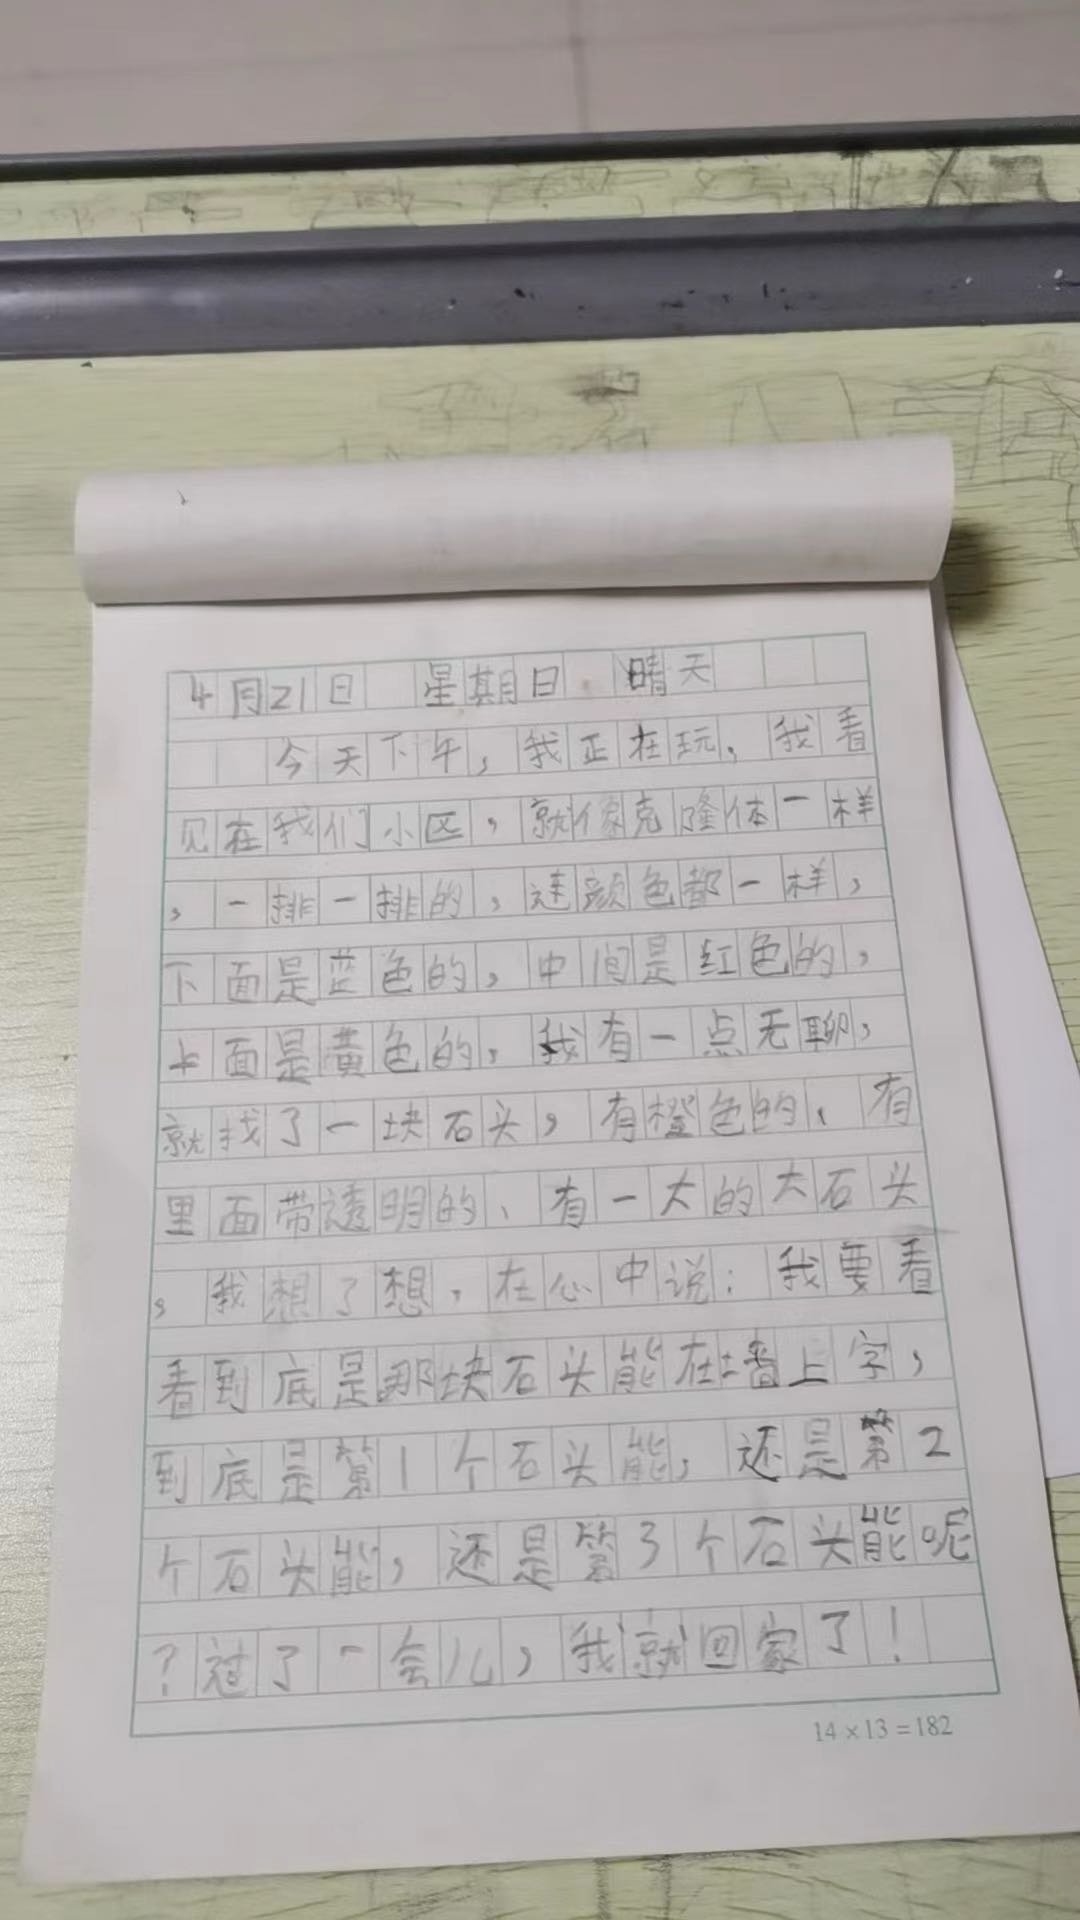 4月21日 星期日 晴天
今天下午，我正在玩，我看
见在我们小区，就像克隆体一样
，一排一排的，连颜色都一样，
下面是蓝色的，中间是红色的，
上面是黄色的，我有一点无聊，
就找了一块石头，有橙色的、有
里面带透明的、有一大的大石头
。我想了想，在心中说：我要看
看到底是那块石头能在墙上字，
到底是第1个石头能，还是第2
个石头能，还是第3个石头能呢
？过了一会儿，我就回家了！
14×13=182